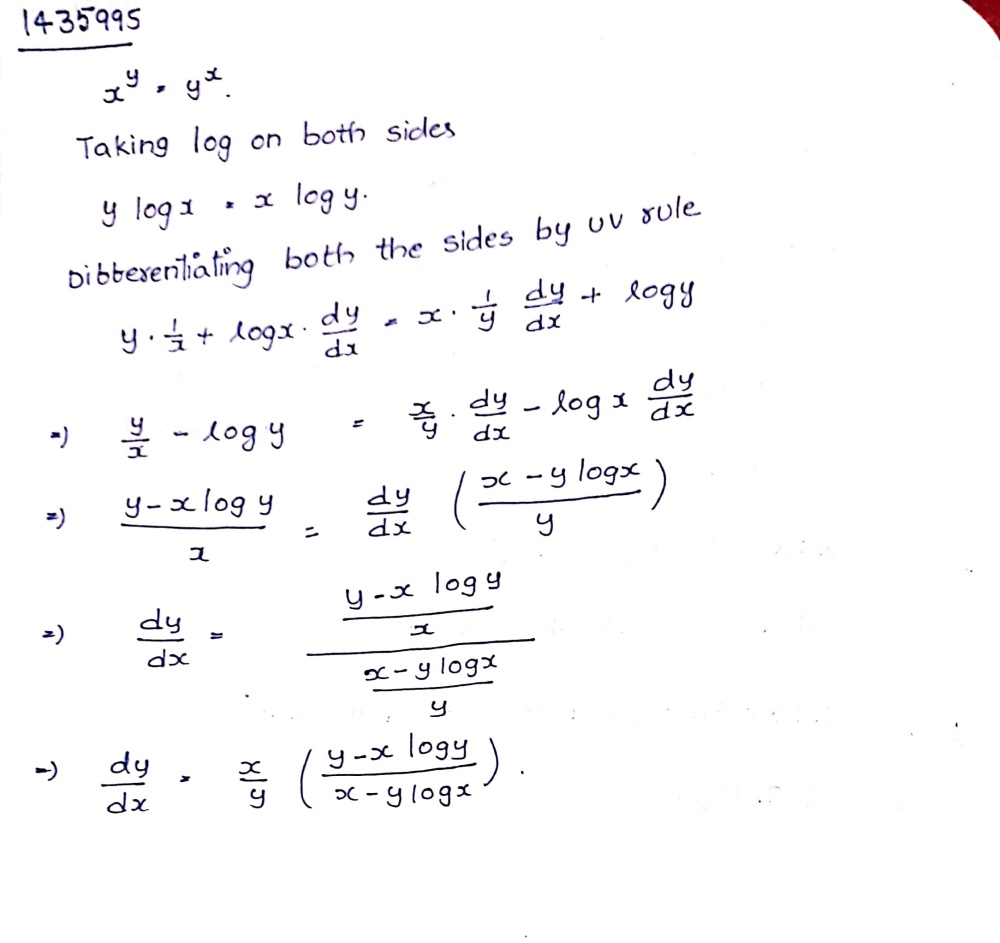 1435995
x^y = y^x.
Taking log on both sides
y log x = x log y.
Differentiating both the sides by uv rule
y · 1/x + log x · dy/dx = x · 1/y dy/dx + log y
=) y/x - log y = x/y · dy/dx - log x dy/dx
=) (y - x log y)/x = dy/dx ((x - y log x)/y)
=) dy/dx = ((y - x log y)/x)/((x - y log x)/y)
=) dy/dx = x/y ((y - x log y)/(x - y log x)).